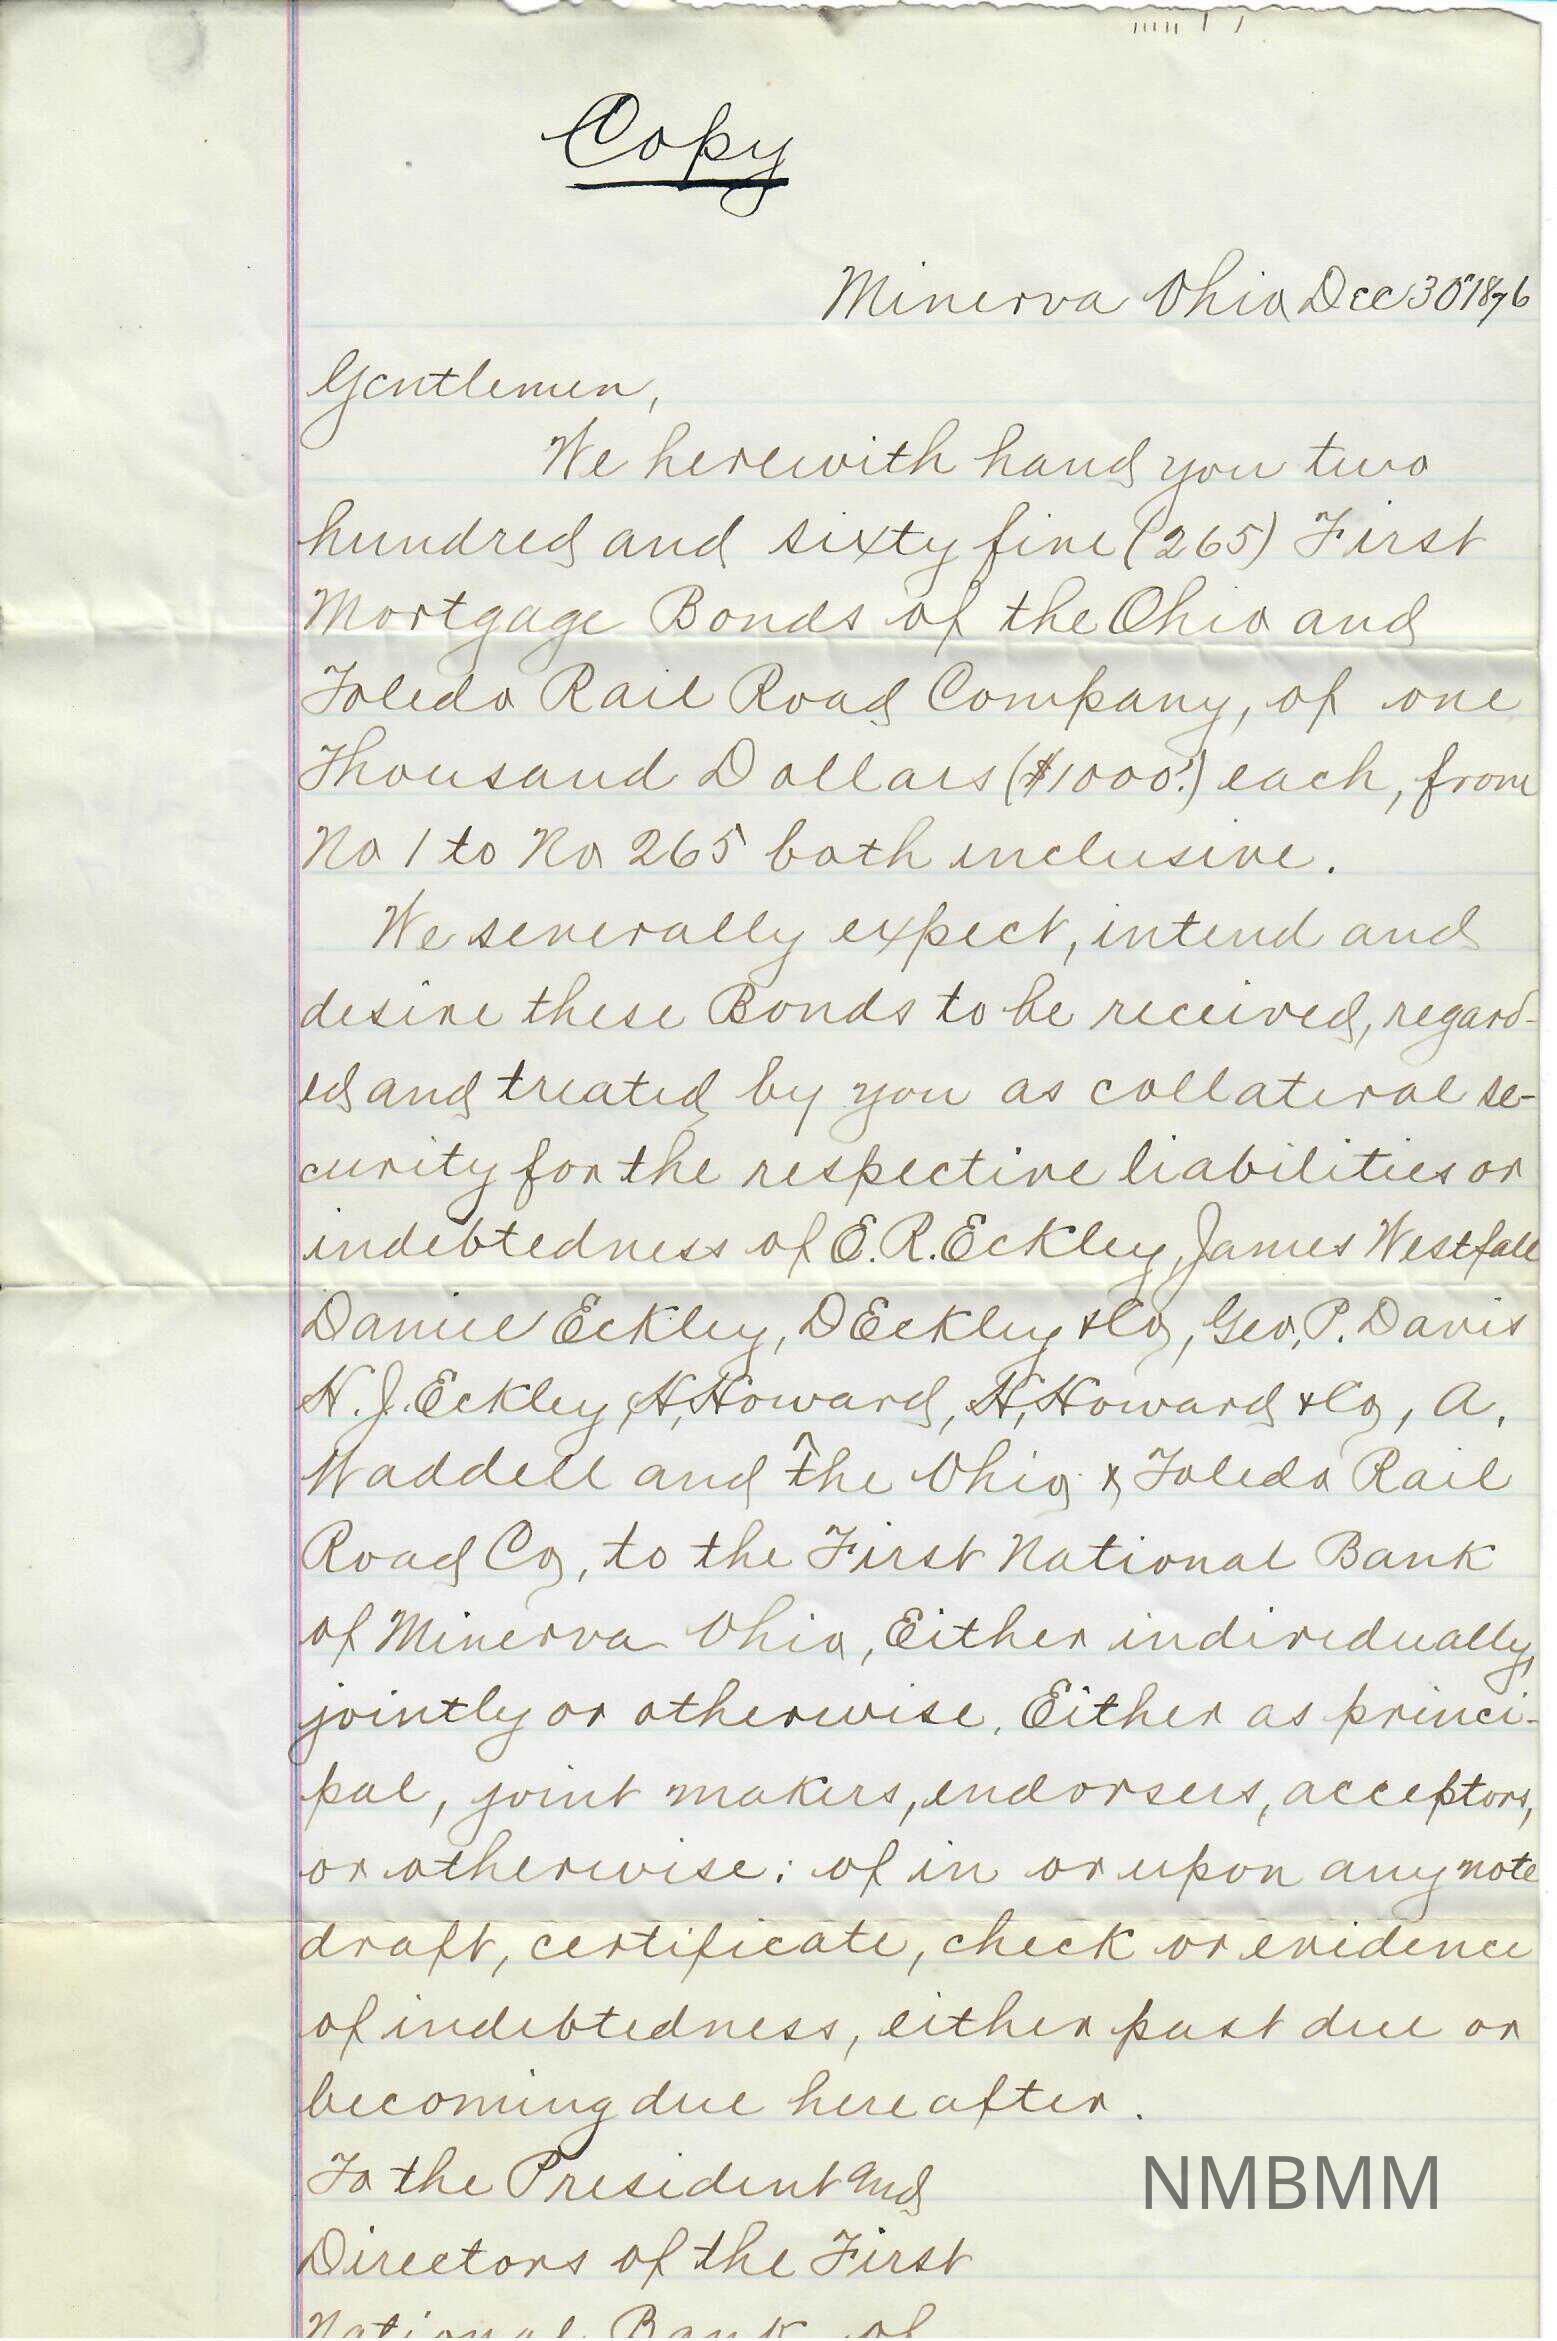 Copy
Minerva Ohio Dec 30 1876
Gentlemen,
We herewith hand you two
hundred and sixty five (265) First
Mortgage Bonds of the Ohio and
Toledo Rail Road Company, of one
Thousand Dollars ($1000.) each, from
No 1 to No 265 both inclusive.
We severally expect, intend and
desire these Bonds to be received, regard-
ed and treated by you as collateral se-
curity for the respective liabilities or
indebtedness of E. R. Eckley, James Westfall
Daniel Eckley, D Eckley & Co, Geo. P. Davis
H. J. Eckley, H. Howard, H. Howard & Co, A.
Waddell and The Ohio & Toledo Rail
Road Co, to the First National Bank
of Minerva Ohio, Either individually,
jointly or otherwise. Either as princi-
pal, joint makers, endorsers, acceptors,
or otherwise: of in or upon any note
draft, certificate, check or evidence
of indebtedness, either past due or
becoming due hereafter.
To the President and
Directors of the First
National Bank of
NMBMM